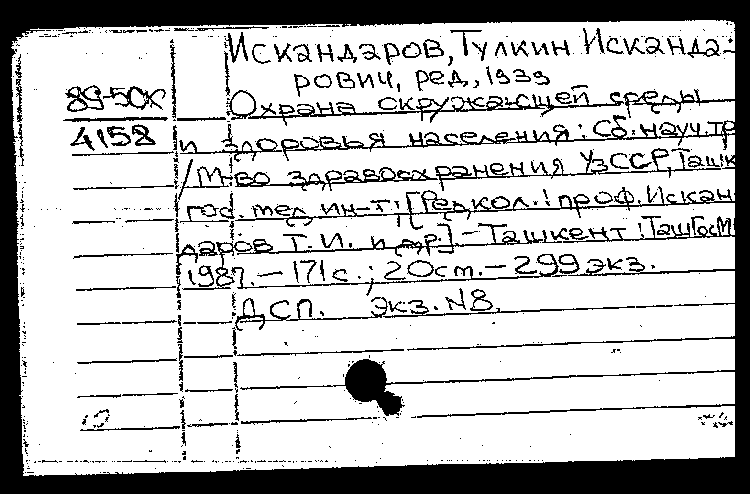 Искандаров, Тулкин Исканда-
рович, ред, 1939
89-50к
Охрана окружающей среды
4158
и здоровья населения: Сб. науч. тр
/М-во здравоохранения УзССР, Ташк
гос. мед. ин-т; [Редкол.: проф. Искан-
даров Т. И. и др.] - Ташкент: ТашГосМ
1987. - 171 с.; 20 ст. - 299 экз.
ДСП. экз. N8.